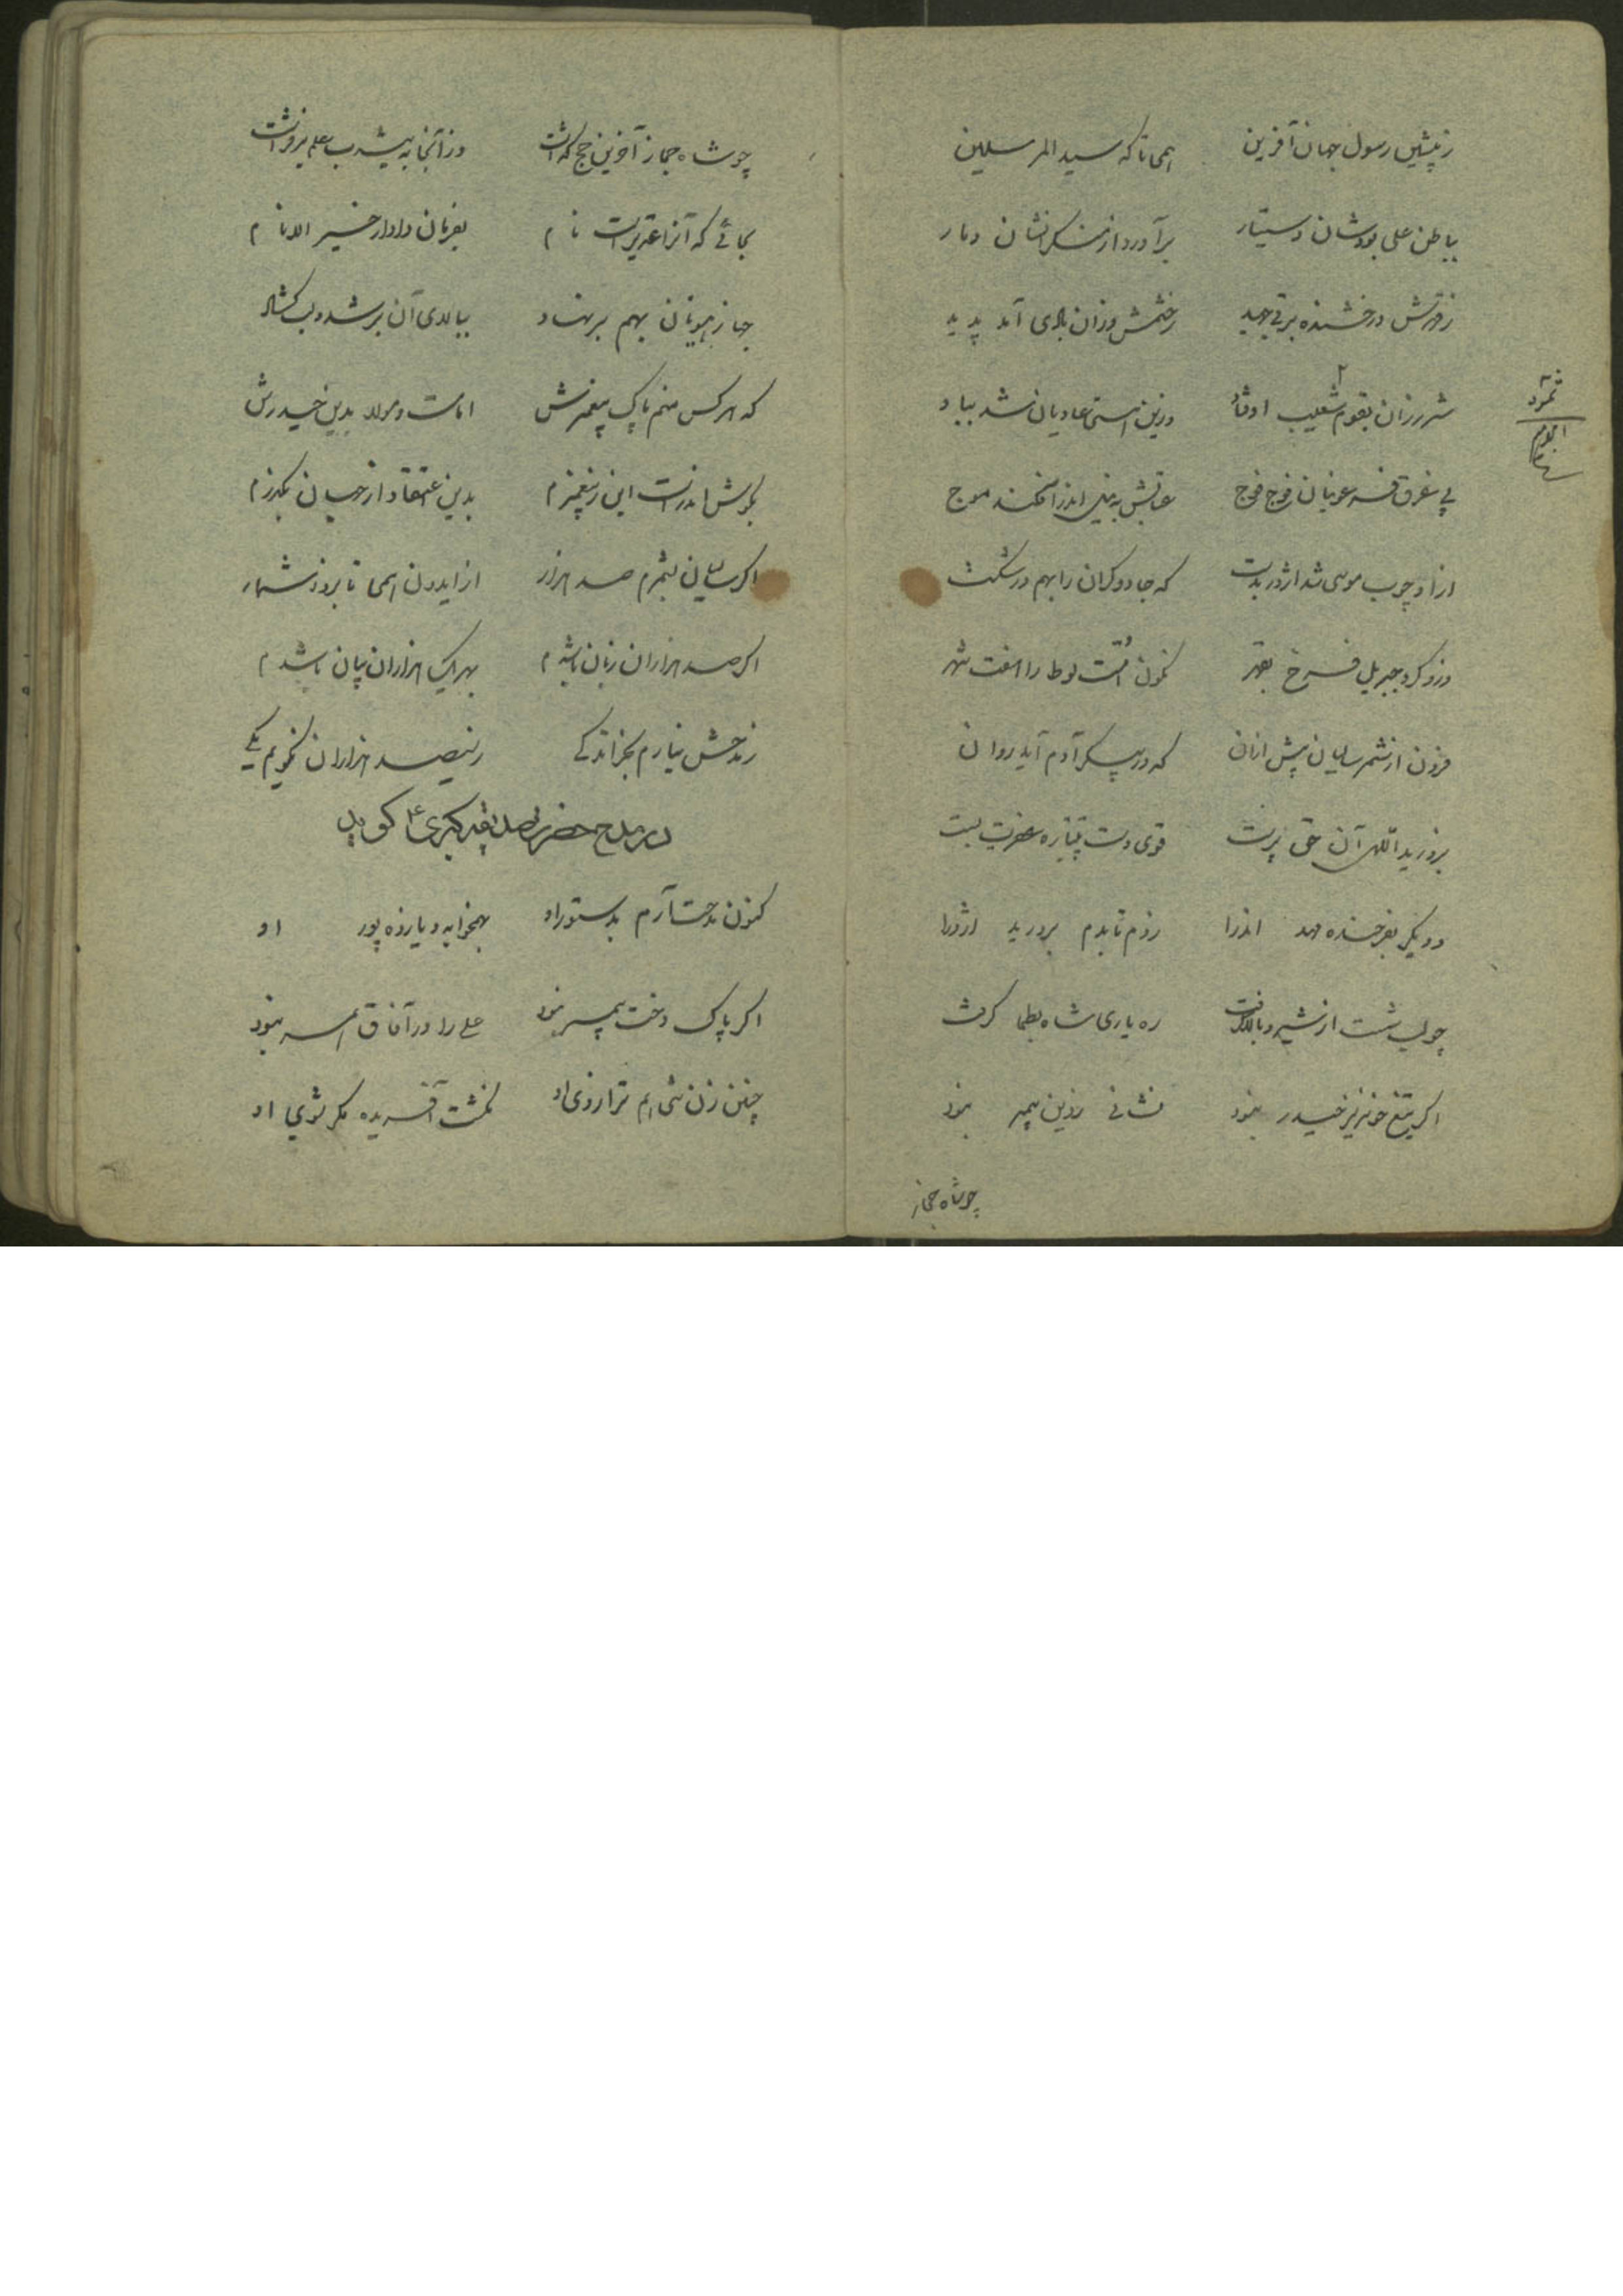 ز پیشین رسول جهان آفرین همی تا که سید المرسلین
بباطن علی بودشان دستیار برآورد از منکرانشان دمار
ز قهرش درخشنده برقی جهید ز خشمش وزان بادی آمد پدید
شرر زان بقوم شعیب اوفتاد وزین هستی عادیان شد بباد
ثمود
پی غرق فرعونیان فوج فوج عتابش به نیل اندر افکند موج
ازو چوب موسی شد اژدر بدست که جادوگران را بهم در شکست
وزو کرد جبریل فرخ بقهر نگون امت لوط را هفت شهر
فزون از شمر سالیان پیش ازان که در پیکر آدم آید روان
بروزید اللهی آن حق پرست قوی دست پتیاره عفریت بست
و دیگر بفرخنده مهد اندرا ز دم تا بدم بردرید اژدرا
چو لب شست از شیر و بالا گرفت ره یاری شاه بطحا گرفت
اگر تیغ خونریز حیدر نبود نشانی ز دین پیمبر نبود
چو شاه حجاز
چو شاه حجاز آخرین حج گذاشت وز آنجا به یثرب علم برفراشت
بجائی که آنرا غدیر است نام بفرمان دادار خیر الانام
جهاز هیونان بهم برنهاد ببالای آن برشد و لب گشاد
که هر کس منم پاک پیغمبرش امامست و مولا بدین حیدرش
بگوش اندرست این ز پیغمبرم بدین اعتقاد از جهان بگذرم
اگر سالیان بشمرم صد هزار از ایدون همی تا بروز شمار
اگر صد هزاران زبان باشدم بهر یک هزاران بیان باشدم
ز مدحش نیارم بجز اندکی ز سیصد هزاران نگویم یکی
در مدح حضرت صدیقه کبری ع گوید
کنون مدحت آرم بدستور او بهمخوابه و یازده پور او
اگر پاک دخت پیمبر نبود علی را در آفاق همسر نبود
چنین زن هم ترازوی او نگشت آفریده مگر شوی او